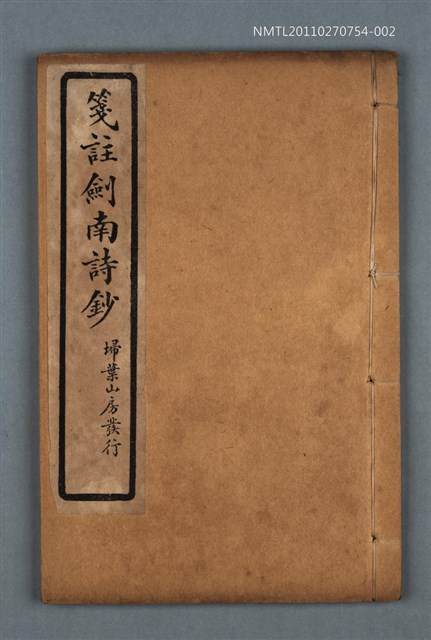 NMTL20110270754-002
箋註劍南詩鈔
埽葉山房發行